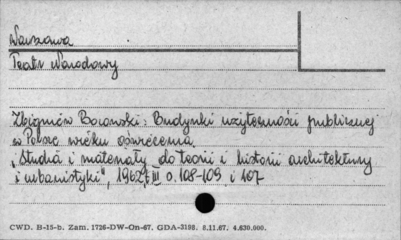 Warszawa
Teatr Narodowy
Zbigniew Bocowski: Budynki użyteczności publicznej
w Polsce wieku oświecenia.
"Studia i materiały do teorii i historii architektury
i urbanistyki", 1962, t. III s. 108-109 i 107
CWD. B-15-b. Zam. 1726-DW-On-67. GDA-3188. 8.11.67. 4.630.000.